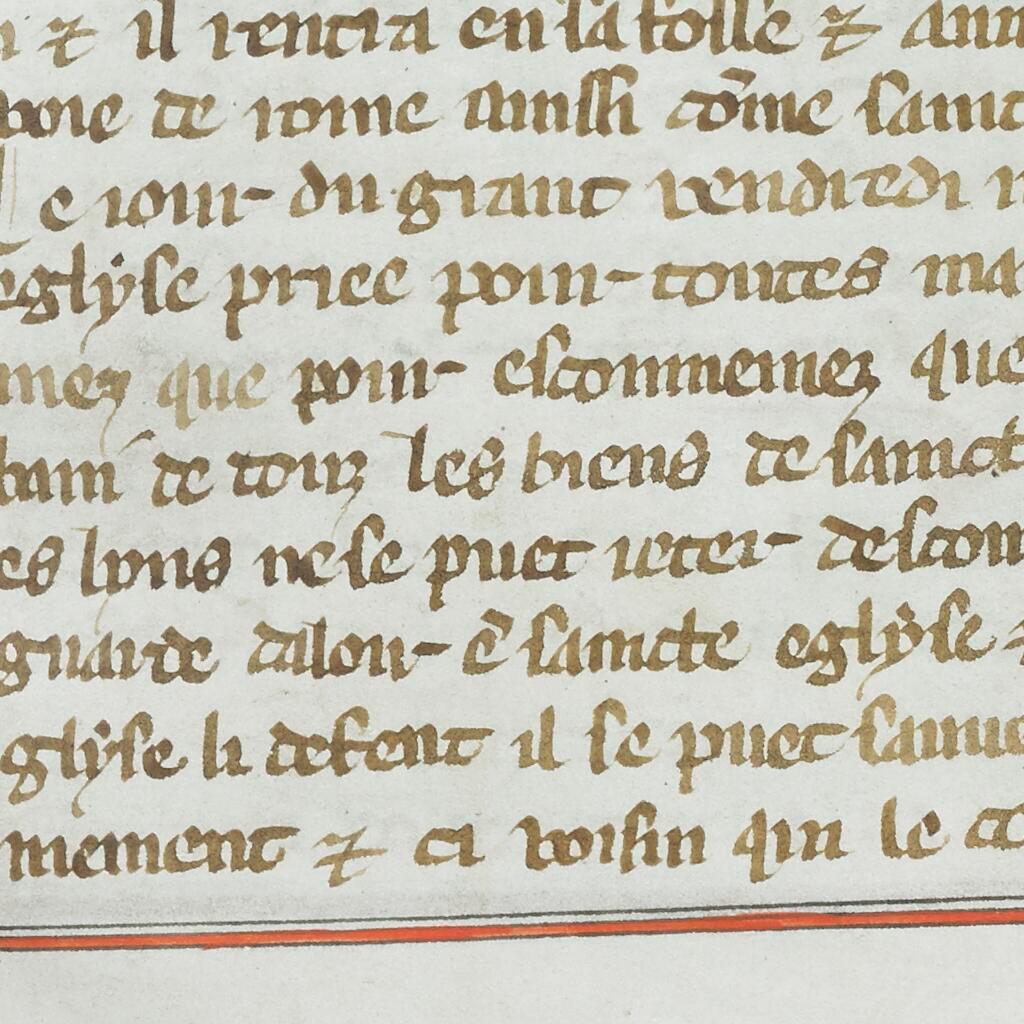 ⁊ il rentra en la folle ⁊ ann
voie de rome aussi cõme sainct
e iour du grant vendredi
eglyse priee pour toutes ma
mez que pour escommeniez que
de touz les biens de sainct
es lyons ne se puet ieter descom
guarde dalour ẽ saincte eglyse
glyse li defent il se puet sauue
mement ⁊ ci voisin qui le